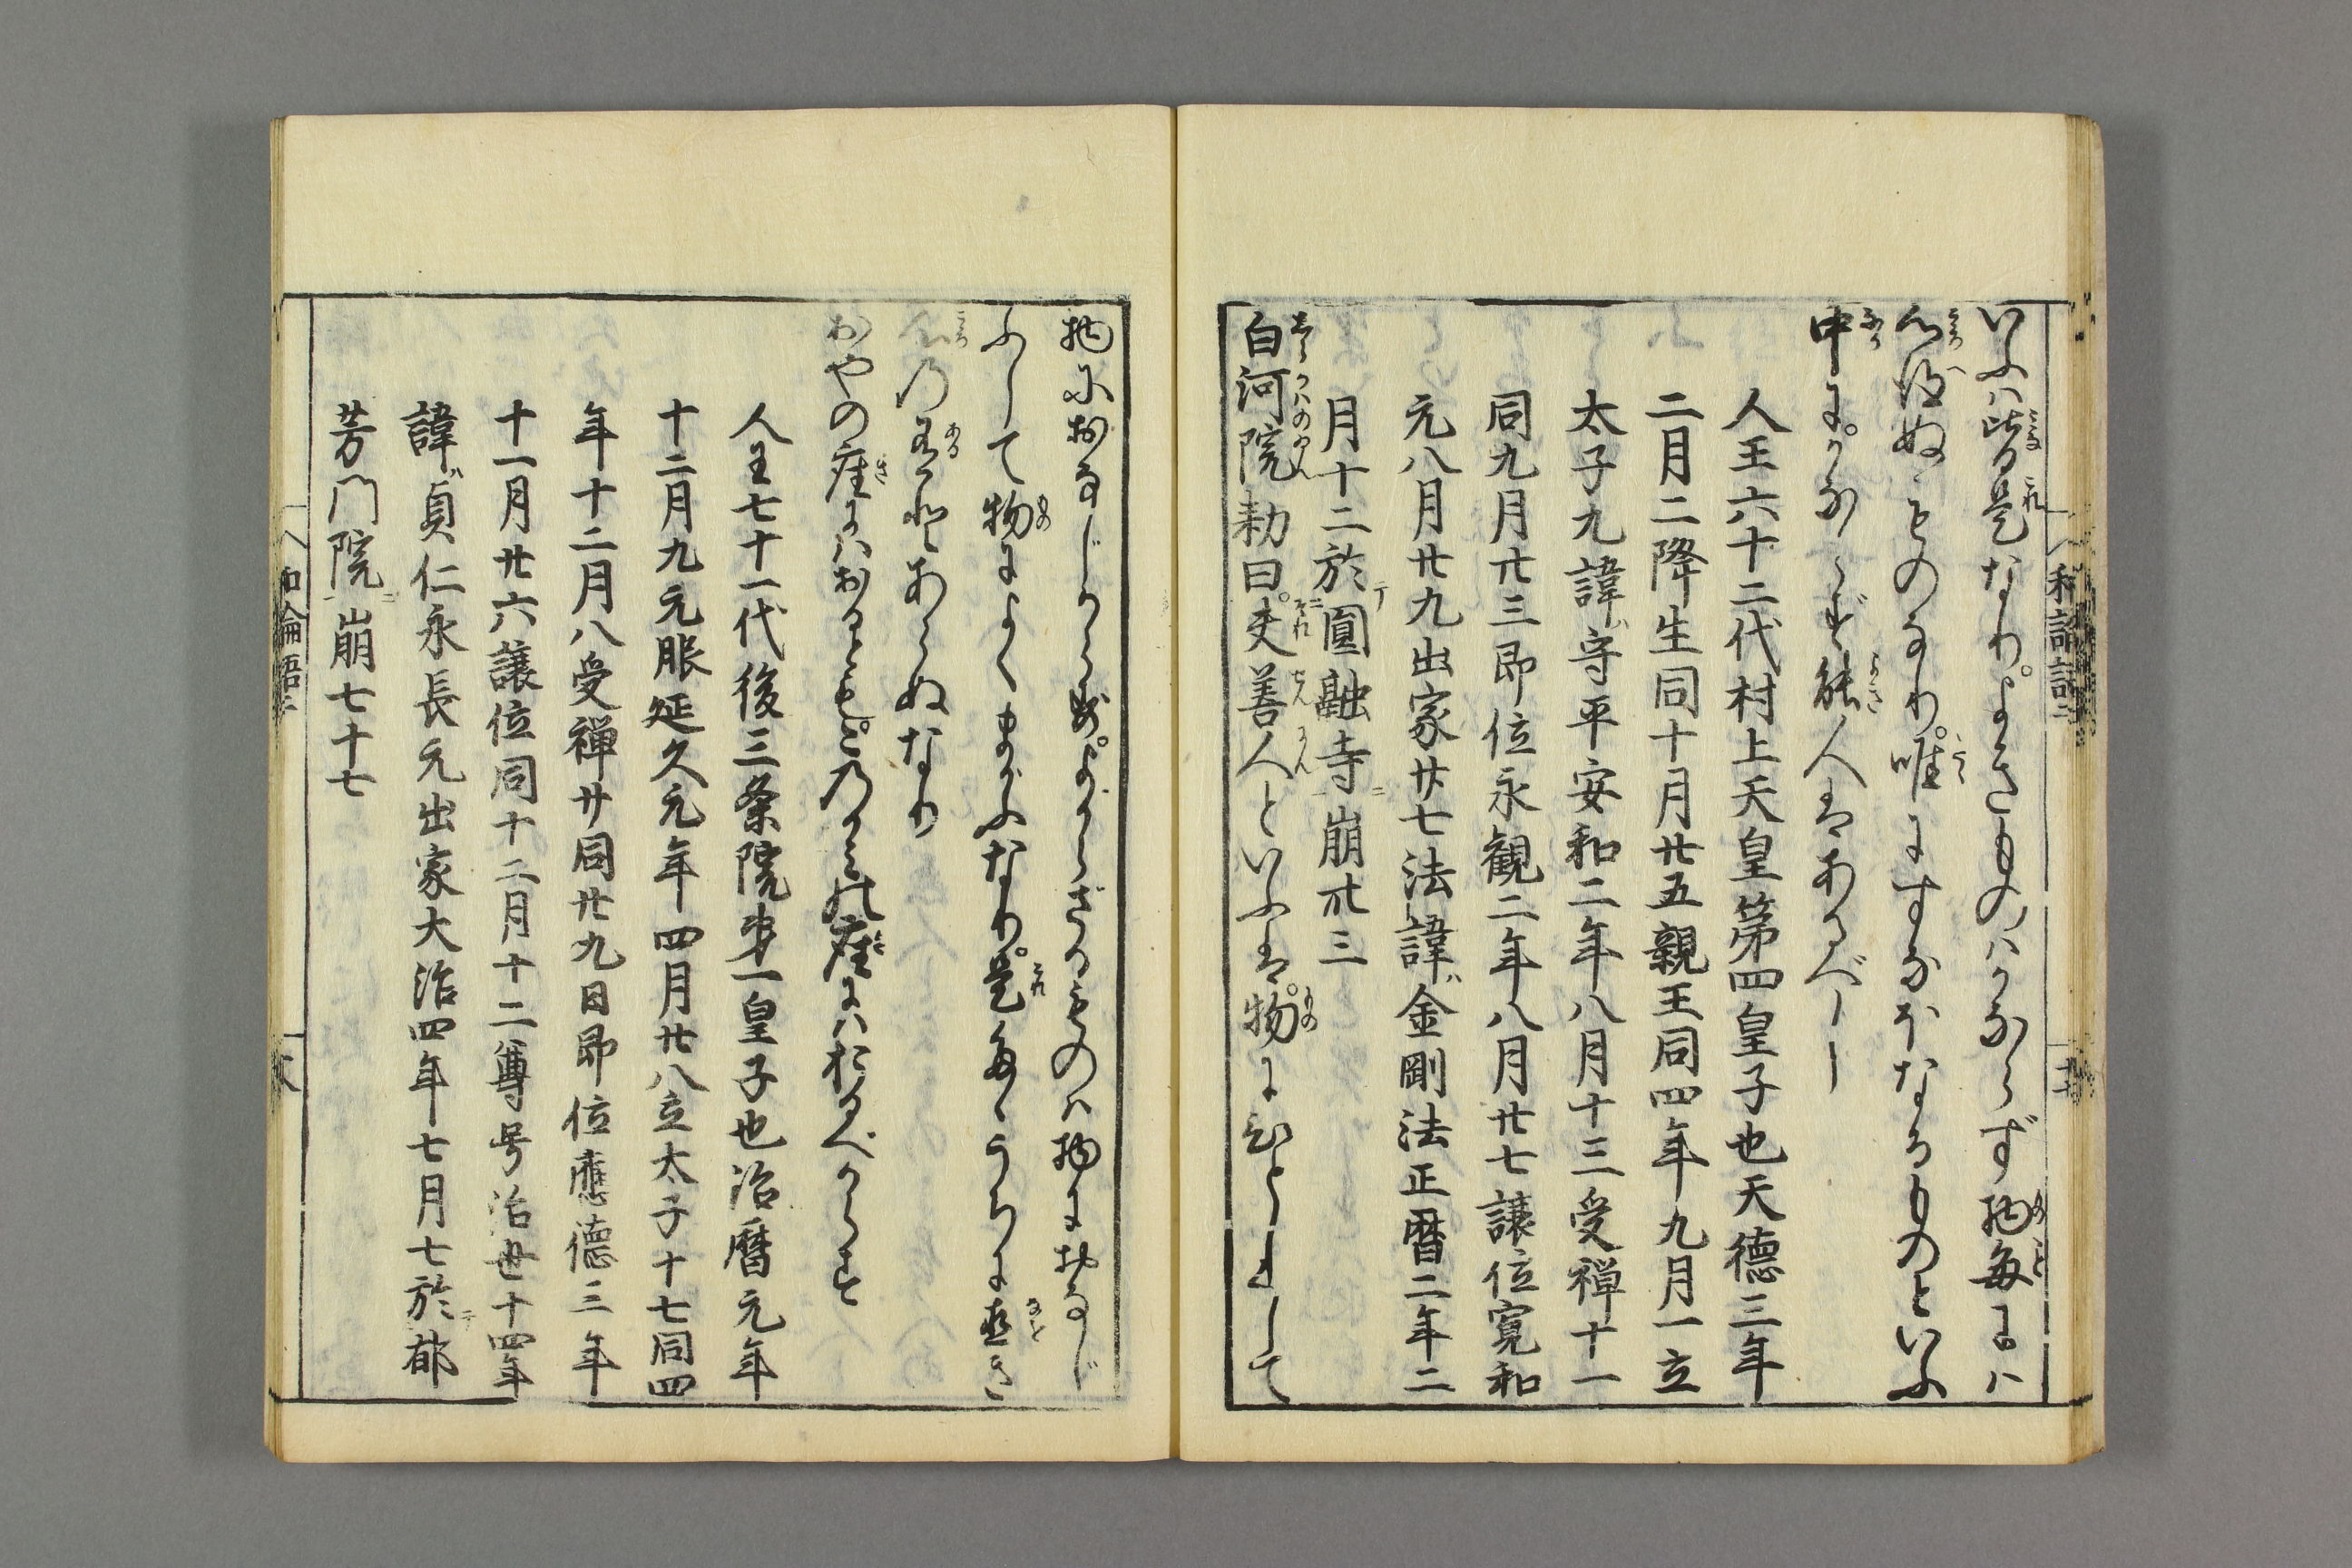 いふハ皆是なり。よきものハかならず物毎にハ
心得ぬものなり。唯にすなほなるものといふ
中に。かならず能人はあるべし
人王六十二代村上天皇第四皇子也天德三年
二月二降生同十月廿五親王同四年九月一立
太子九諱守平安和二年八月十三受禅十一
同九月廿三即位永観二年八月廿七譲位寛和
元八月廿九出家廿七法諱金剛法正暦二年二
月十二於圓融寺崩卅三
白河院勅曰。夫善人といふは。物にひとしして
物におなじからず。よからざるものハ物におなじ
ふして物によくまがふなり。是毎うちに直き
心の有とあらぬなり
おやの座にハおるとも。この座にハおるべからず
人王七十一代後三条院第一皇子也治暦元年
十二月九元服延久元年四月廿八立太子十七同四
年十二月八受禅廿同廿九日即位應德三年
十一月廿六譲位同十二月十二尊号治世十四年
諱貞仁永長元出家大治四年七月七於郁
芳門院崩七十七
和論語二